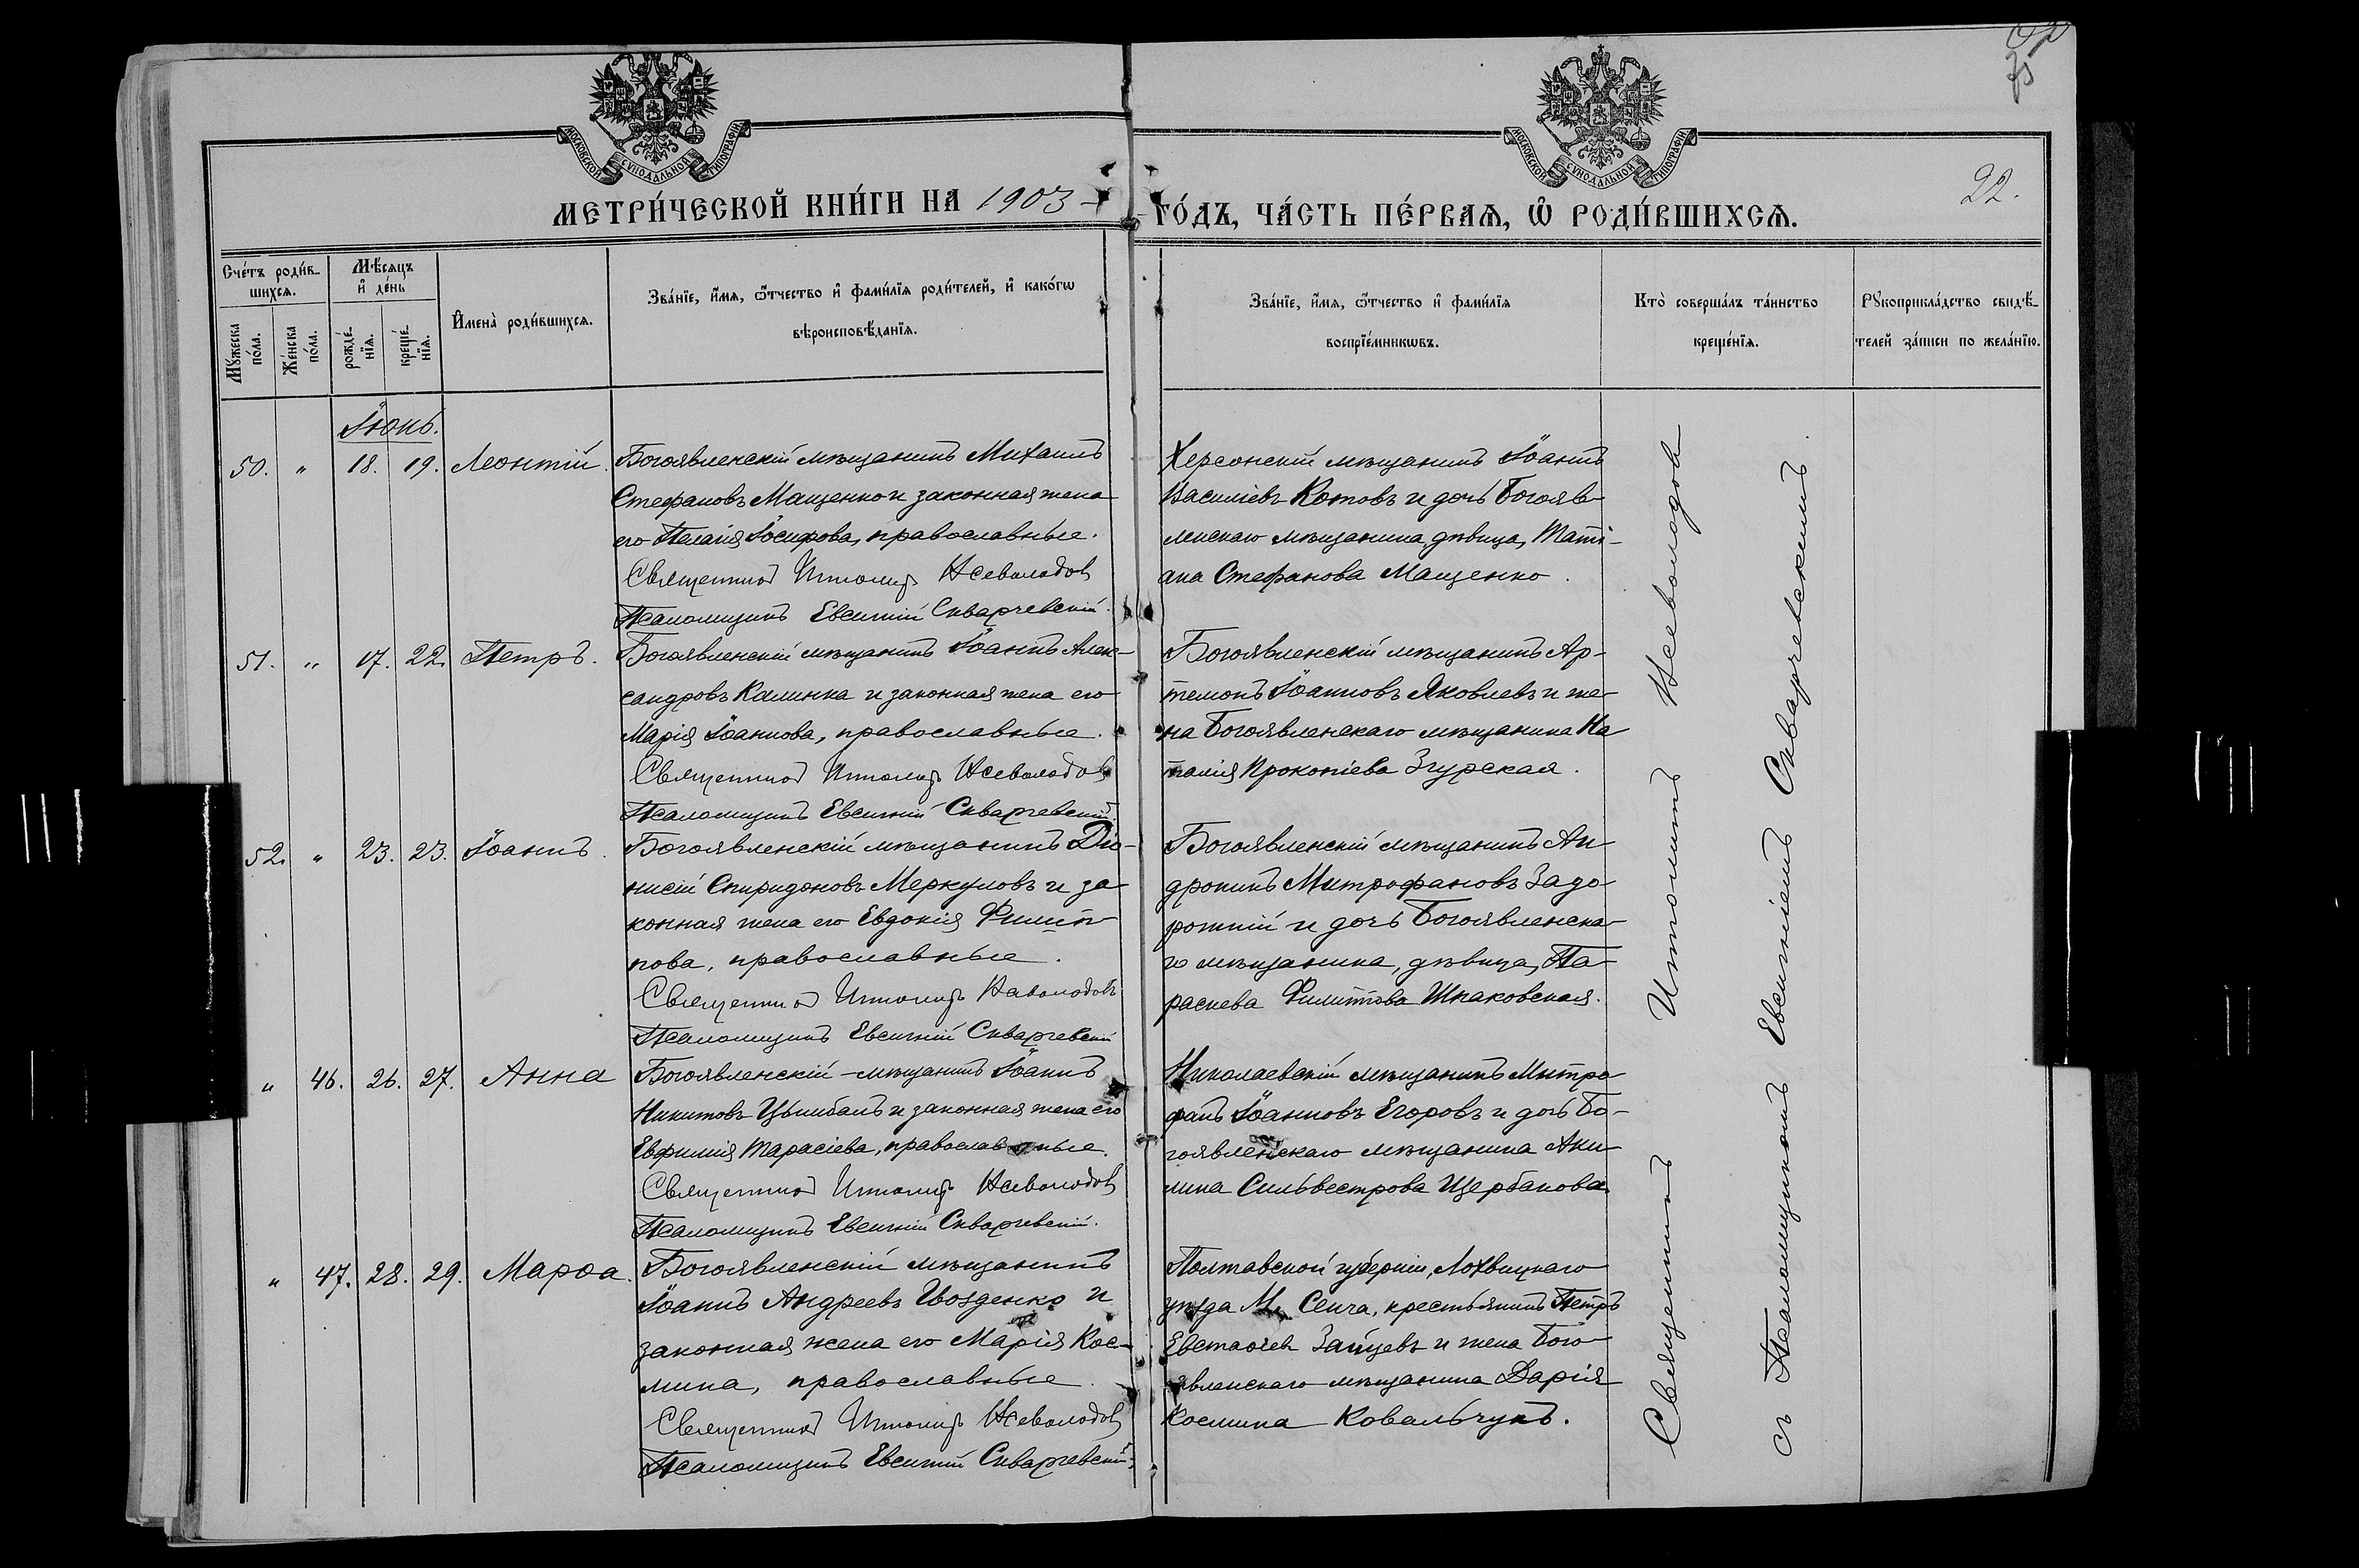 МОСКОВСКОЙ СѴНОДАЛЬНОЙ ТИПОГРАФІИ
МОСКОВСКОЙ СѴНОДАЛЬНОЙ ТИПОГРАФІИ
22.
МЕТРИ́ЧЕСКОЙ КНИ́ГИ НА 1903 -
ГО́ДЪ, ЧА́СТЬ ПЕ́РВАѦ, Ѡ҆ РОДИ́ВШИХСѦ.
Сче́тъ роди́в-
шихсѧ.
Мꙋ́жеска по́ла.
Же́нска по́ла.
Мѣ́сѧцъ
и҆ де́нь
рожде́-
нїѧ.
креще́-
нїѧ.
И҆мена̀ роди́вшихсѧ.
Зва́нїе, и҆́мѧ, ѻ҆́тчество и҆ фами́лїѧ роди́телей, и҆ како́гѡ
вѣроисповѣ́данїѧ.
Зва́нїе, и҆́мѧ, ѻ҆́тчество и҆ фами́лїѧ
воспрїе́мникѡвъ.
Кто̀ соверша́лъ та́инство
креще́нїѧ.
Рꙋкоприкла́дство свидѣ́-
телей за́писи по жела́нїю.
Іюнь.
50. " 18. 19. Леонтій.
Богоявленскій мѣщанинъ Михаилъ
Стефановъ Мащенко и законная жена
его Пелагія Іосифова, православные.
Священникъ Ипполитъ Всеволодовъ
Псаломщикъ Евгеній Скварчевскій.
Херсонскій мѣщанинъ Іоаннъ
Василіевъ Котовъ и дочь Богояв-
ленскаго мѣщанина, дѣвица, Тати-
ана Стефанова Мащенко.
51. " 17. 22. Петръ.
Богоявленскій мѣщанинъ Іоаннъ Алек-
сандровъ Калинка и законная жена его
Марія Іоаннова, православные.
Священникъ Ипполитъ Всеволодовъ
Псаломщикъ Евгеній Скварчевскій.
Богоявленскій мѣщанинъ Ар-
темонъ Іоанновъ Яковлевъ и же-
на Богоявленскаго мѣщанина На
талія Прокопіева Згурская.
52. " 23. 23. Іоаннъ.
Богоявленскій мѣщанинъ Діо-
нисій Спиридоновъ Меркуловъ и за-
конная жена его Евдокія Филип-
пова, православные.
Священникъ Ипполитъ Всеволодовъ
Псаломщикъ Евгеній Скварчевскій
Богоявленскій мѣщанинъ Ан-
дроникъ Митрофановъ Задо-
рожній и дочь Богоявленска-
го мѣщанина, дѣвица, Па-
раскева Филиппова Шпаковская.
" 46. 26. 27. Анна
Богоявленскій мѣщанинъ Іоаннъ
Никитовъ Цымбалъ и законная жена его
Евфимія Тарасіева, православные.
Священникъ Ипполитъ Всеволодовъ
Псаломщикъ Евгеній Скварчевскій.
Николаевскій мѣщанинъ Митро-
фанъ Іоанновъ Егоровъ и дочь Бо-
гоявленскаго мѣщанина Аки-
лина Сильвестрова Щербакова
" 47. 28. 29. Марѳа.
Богоявленскій мѣщанинъ
Іоаннъ Андреевъ Гвозденко и
законная жена его Марія Кос-
мина, православные.
Священникъ Ипполитъ Всеволодовъ
Псаломщикъ Евгеній Скварчевскій.
Полтавской губерніи, Лохвицкаго
уѣзда М. Сенча, крестьянинъ Петръ
Евстаѳіевъ Зайцевъ и жена Бого
явленскаго мѣщанина Дарія
Космина Ковальчукъ.
Священникъ Ипполитъ Всеволодовъ
съ Псаломщикомъ Евгеніемъ Скварчевскимъ.